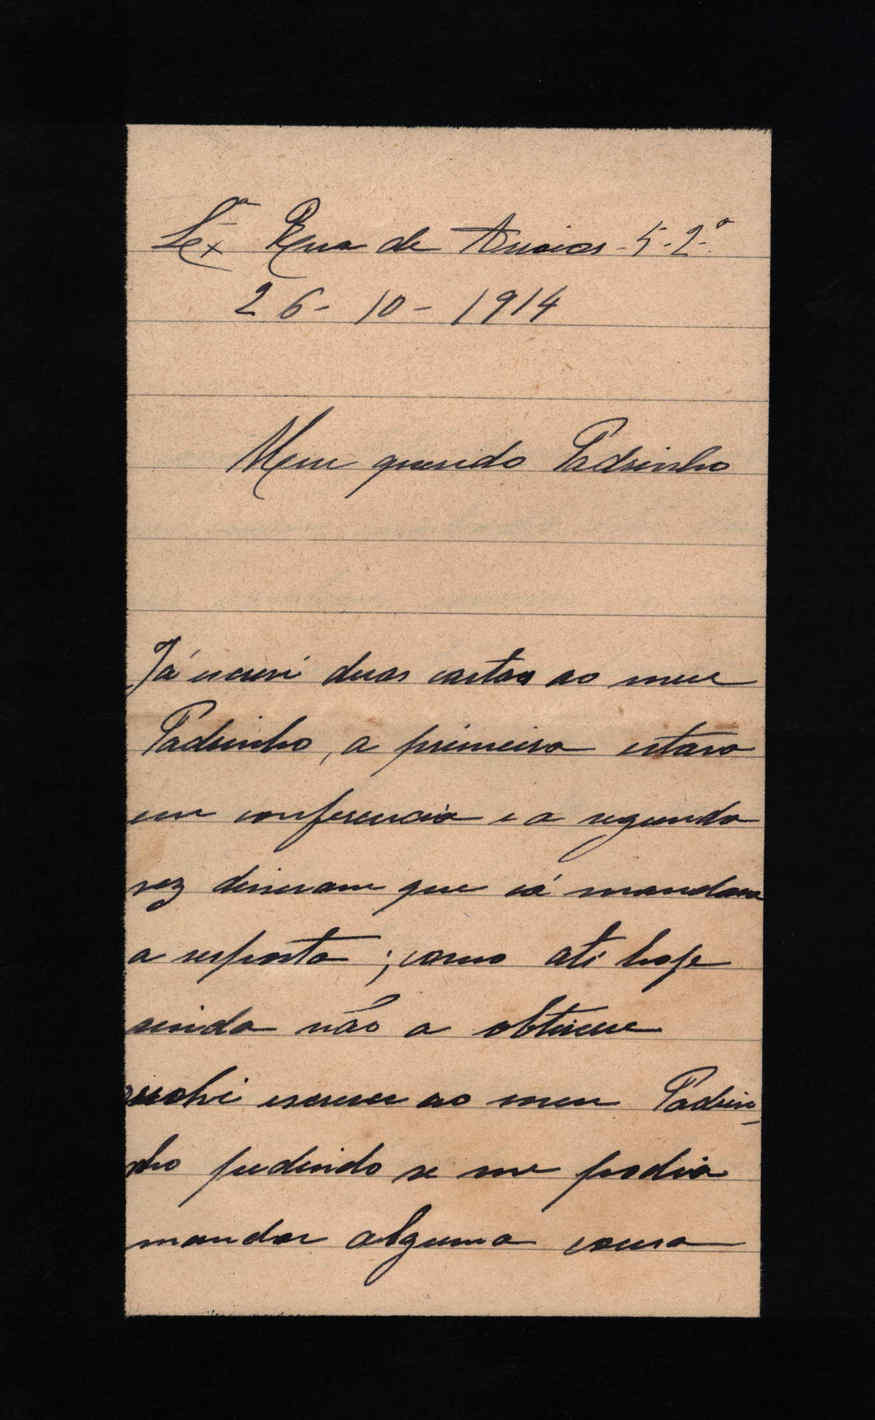 Lxª Rua de Arroios - 5 - 2º.
26 - 10 - 1914
Meu querido Padrinho
Já escrevi duas cartas ao meu
Padrinho, a primeira estava
em conferencia e a segunda
vez disseram que cá mandava
a resposta; como até hoje
ainda não a obtivesse
escrever ao meu Padri-
nho pedindo se me podia
mandar alguma cousa